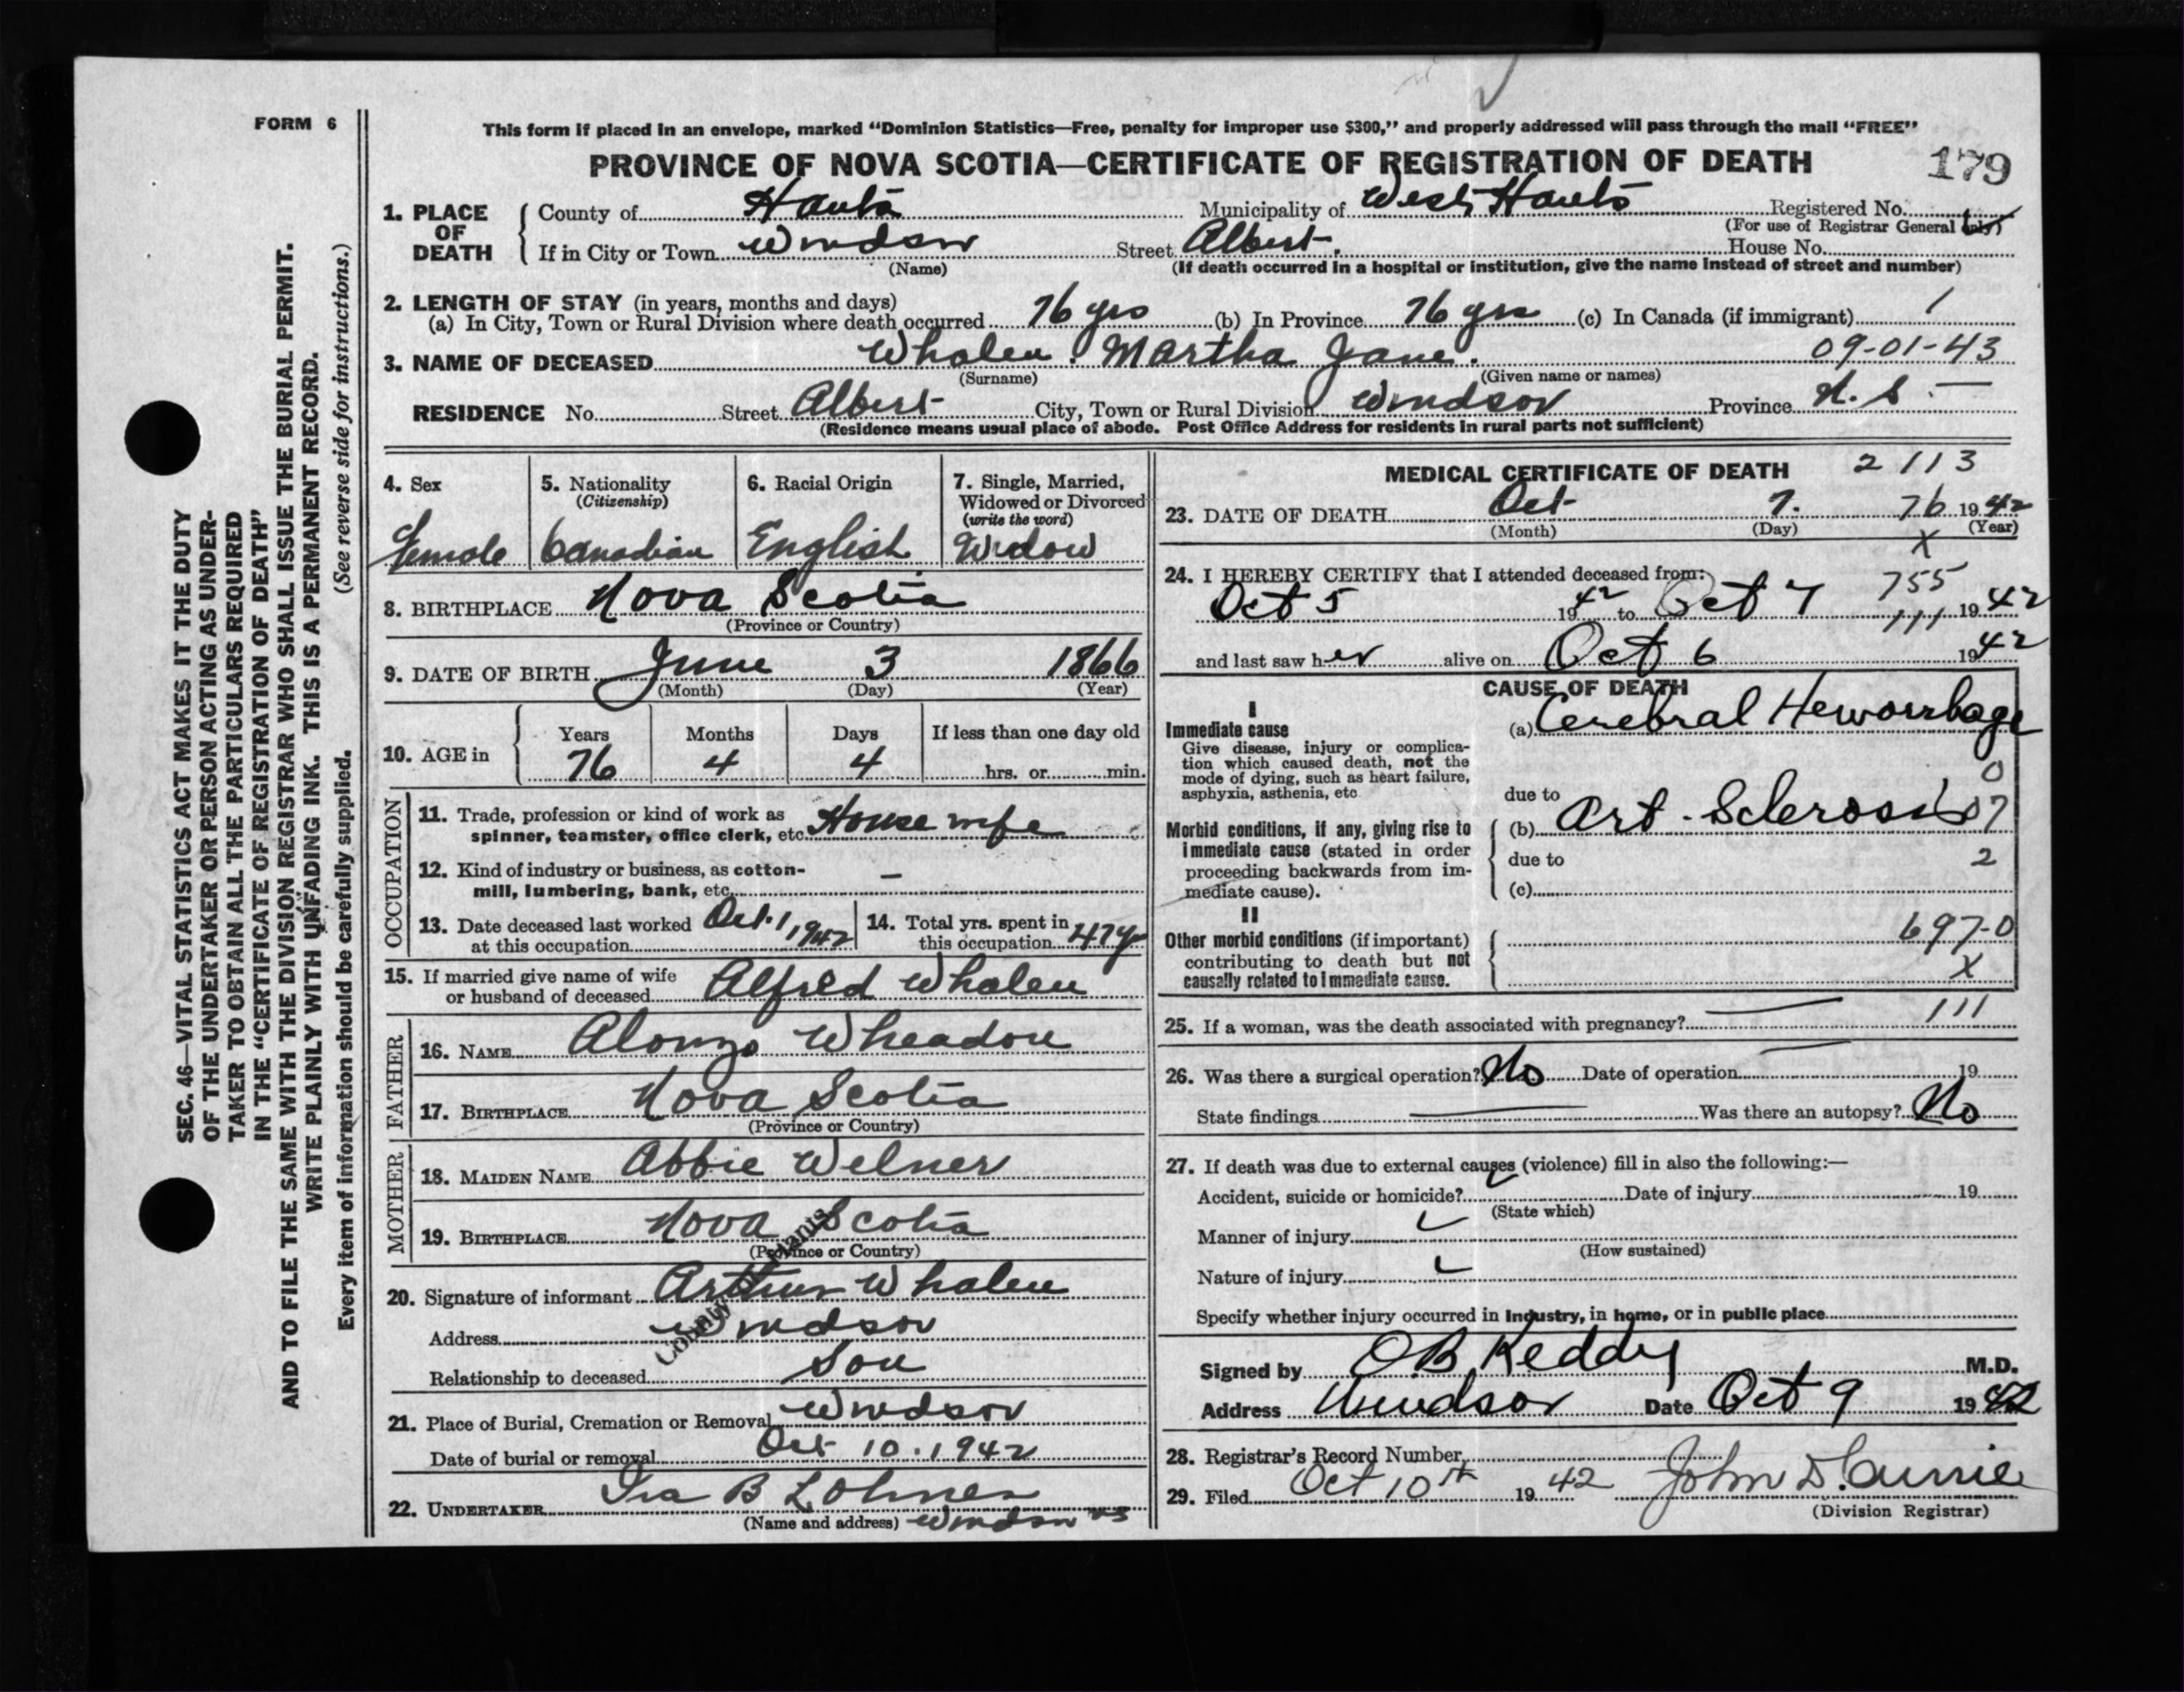 FORM 6
This form if placed in an envelope, marked “Dominion Statistics—Free, penalty for improper use $300,” and properly addressed will pass through the mail “FREE”
PROVINCE OF NOVA SCOTIA—CERTIFICATE OF REGISTRATION OF DEATH 179
1. PLACE OF DEATH County of Hants Municipality of West Hants Registered No.
(For use of Registrar General only)
If in City or Town Windsor Street Albert. House No.
(Name) (If death occurred in a hospital or institution, give the name instead of street and number)
2. LENGTH OF STAY (in years, months and days)
(a) In City, Town or Rural Division where death occurred 76 yrs (b) In Province 76 yrs (c) In Canada (if immigrant) /
3. NAME OF DECEASED Whalen. Martha Jane. 09-01-43
(Surname) (Given name or names)
RESIDENCE No. Street Albert City, Town or Rural Division Windsor Province N.S.—
(Residence means usual place of abode. Post Office Address for residents in rural parts not sufficient)
4. Sex Female
5. Nationality (Citizenship) Canadian
6. Racial Origin English
7. Single, Married, Widowed or Divorced (write the word) Widow
8. BIRTHPLACE Nova Scotia
(Province or Country)
9. DATE OF BIRTH June 3 1866
(Month) (Day) (Year)
10. AGE in Years 76 Months 4 Days 4 If less than one day old
hrs. or min.
OCCUPATION
11. Trade, profession or kind of work as
spinner, teamster, office clerk, etc. House wife
12. Kind of industry or business, as cotton-
mill, lumbering, bank, etc. —
13. Date deceased last worked at this occupation Oct. 1, 1942
14. Total yrs. spent in this occupation 47 yr
15. If married give name of wife
or husband of deceased Alfred Whalen
FATHER
16. NAME Alonzo Wheadon
17. BIRTHPLACE Nova Scotia
(Province or Country)
MOTHER
18. MAIDEN NAME Abbie Welner
19. BIRTHPLACE Nova Scotia
(Province or Country)
20. Signature of informant Arthur Whalen
Address Windsor
Relationship to deceased Son
21. Place of Burial, Cremation or Removal Windsor
Date of burial or removal Oct 10. 1942
22. UNDERTAKER Ira B Lohnes
(Name and address) Windsor NS
MEDICAL CERTIFICATE OF DEATH 2113
23. DATE OF DEATH Oct 7. 76 1942
(Month) (Day) X (Year)
24. I HEREBY CERTIFY that I attended deceased from: 755
Oct 5 1942 to Oct 7 111 1942
and last saw her alive on Oct 6 1942
CAUSE OF DEATH
I
Immediate cause (a) Cerebral Hemorrhage
Give disease, injury or complica-
tion which caused death, not the
mode of dying, such as heart failure,
asphyxia, asthenia, etc.
0
due to
Morbid conditions, if any, giving rise to (b) Art. Sclerosis 07
immediate cause (stated in order due to 2
proceeding backwards from im-
mediate cause). (c)
II
Other morbid conditions (if important) 697-0
contributing to death but not X
causally related to immediate cause.
25. If a woman, was the death associated with pregnancy? — 111
26. Was there a surgical operation? No Date of operation — 19
State findings — Was there an autopsy? No
27. If death was due to external causes (violence) fill in also the following:—
Accident, suicide or homicide? Date of injury 19
(State which)
Manner of injury
(How sustained)
Nature of injury
Specify whether injury occurred in Industry, in home, or in public place
Signed by OB Keddy M.D.
Address Windsor Date Oct 9 1942
28. Registrar's Record Number
29. Filed Oct 10th 1942 John D. Currie
(Division Registrar)
SEC. 46—VITAL STATISTICS ACT MAKES IT THE DUTY
OF THE UNDERTAKER OR PERSON ACTING AS UNDER-
TAKER TO OBTAIN ALL THE PARTICULARS REQUIRED
IN THE “CERTIFICATE OF REGISTRATION OF DEATH”
AND TO FILE THE SAME WITH THE DIVISION REGISTRAR WHO SHALL ISSUE THE BURIAL PERMIT.
WRITE PLAINLY WITH UNFADING INK. THIS IS A PERMANENT RECORD.
Every item of information should be carefully supplied. (See reverse side for instructions.)